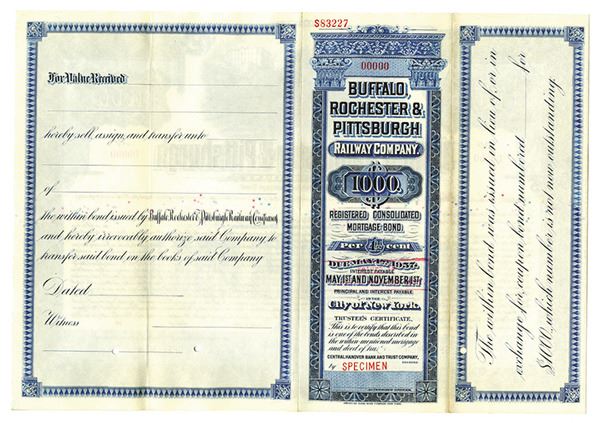 For Value Received
hereby sell, assign, and transfer unto
of
the within bond issued by Buffalo, Rochester & Pittsburgh Railway Company
and hereby irrevocably authorize said Company to
transfer said bond on the books of said Company
Dated
Witness
S83227
00000
BUFFALO,
ROCHESTER &
PITTSBURGH
RAILWAY COMPANY.
$1000
REGISTERED CONSOLIDATED
MORTGAGE BOND.
Per 4½ cent
DUE MAY 1ST 1957.
INTEREST PAYABLE
MAY 1ST AND NOVEMBER 1ST
PRINCIPAL AND INTEREST PAYABLE
IN THE
City of New York.
TRUSTEE'S CERTIFICATE.
This is to certify that this bond
is one of the bonds described in
the within mentioned mortgage
and deed of trust.
CENTRAL HANOVER BANK AND TRUST COMPANY,
by SPECIMEN
The within bond was issued in lieu of, or in
exchange for, coupon bond numbered for
$1000, which number is not now outstanding.